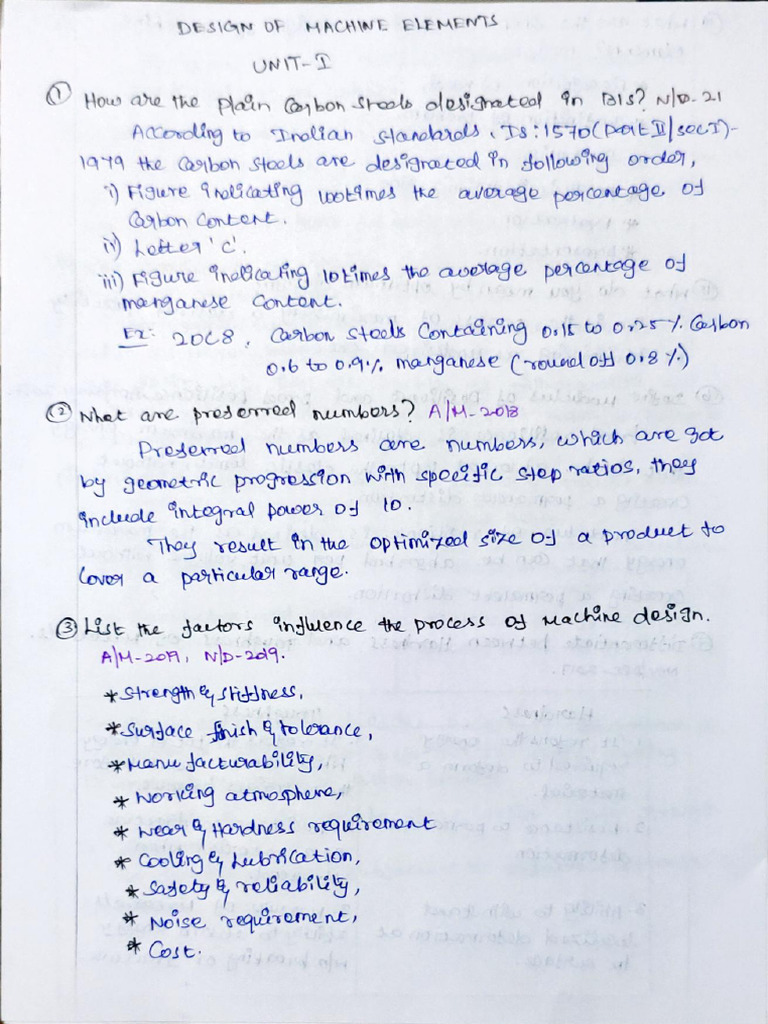 DESIGN OF MACHINE ELEMENTS
UNIT-I
① How are the plain Carbon steels designated in BIS? N/D-21
According to Indian standards, IS:1570(Part II/sec I)-
1979 the carbon steels are designated in following order,
i) Figure indicating 100times the average percentage of
Carbon content.
ii) Letter 'C'.
iii) Figure indicating 10times the average percentage of
manganese content.
Ex: 20C8, Carbon steels containing 0.15 to 0.25% Carbon
0.6 to 0.9% manganese (round off 0.8%)
② What are preferred numbers? A/M-2018
Preferred numbers are numbers, which are got
by geometric progression with specific step ratios, they
include integral power of 10.
They result in the optimized size of a product to
cover a particular range.
③ List the factors influence the process of Machine design.
A/M-2019, N/D-2019.
* Strength & stiffness,
* Surface finish & tolerance,
* Manufacturability,
* Working atmosphere,
* Wear & Hardness requirement
* Cooling & Lubrication,
* Safety & reliability,
* Noise requirement,
* Cost.